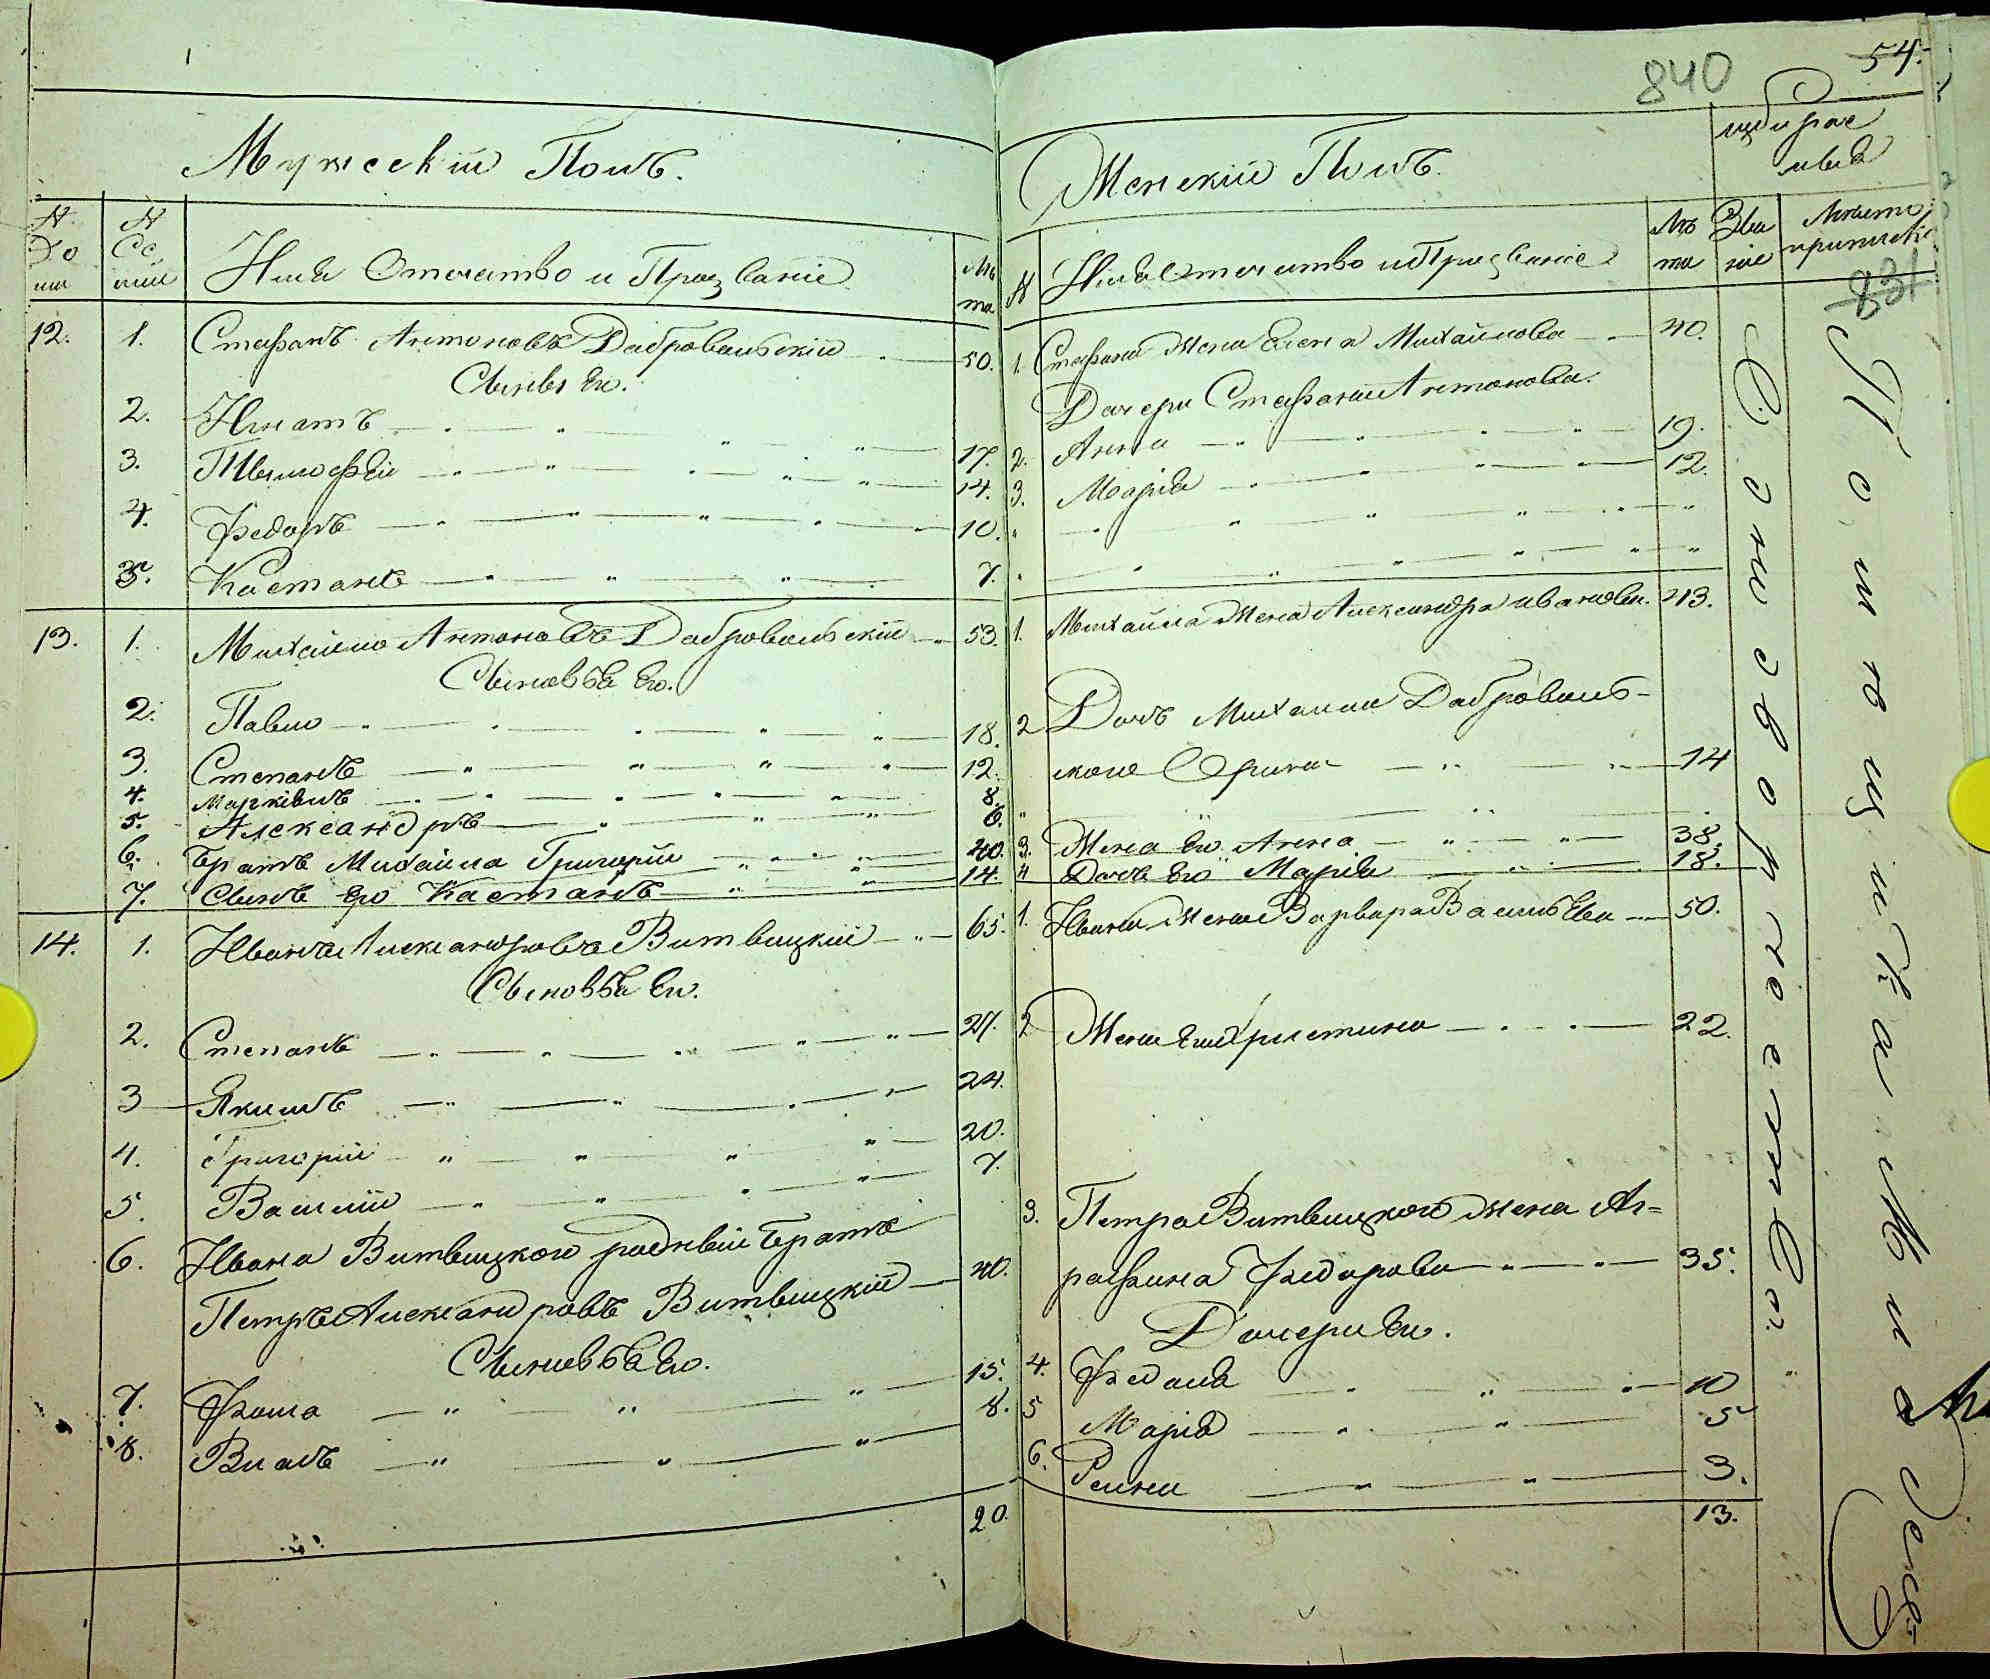 840
54.
Мужескій Полъ.
№ До ма
№ Се мьи
Имя Отечество и Прозваніе
Лѣ та
12. 1. Стефанъ Антоновъ Добровольскій 50.
Сыновья Его.
2. Игнатъ 17.
3. Тымофей 14.
4. Федоръ 10.
5. Кастанъ 7.
13. 1. Михайло Антоновъ Добровольскій 53.
Сыновья Его.
2. Павло 18.
3. Степанъ 12.
4. 8.
5. Александръ 6.
6. Братъ Михайла Григорій 40.
7. Сынъ Его Кастанъ 14.
14. 1. Иванъ Александровъ Витвицкій 65.
Сыновья Его.
2. Степанъ 27.
3 Якимъ 24.
4. Григорій 20.
5. Василій 7.
6. Ивана Витвицкого родный Братъ
Петръ Александровъ Витвицкій 40.
Сыновья Его.
7. Фома 15.
8. 8.
20.
Женскій Полъ.
№
Имя Отечество и Прозваніе
Лѣ та
Зва ніе
831
1. Стефана жена Елена Михайлова 40.
Дочери Стефана Антонова.
2. Анна 19.
3. Марія 12.
1. Михайла жена Александра Иванова. 43.
2 Дочь Михаила Доброволь-
ского Орина 14
3. Жена Его Анна 38.
4 Дочь Его Марія 18.
1. Ивана жена Варвара Васильева 50.
2 Жена Его Христина 22.
3. Петра Витвицкого жена Аг-
рафина Федорова 35.
Дочери Его.
4. 10
5 Марія 5
6. 3.
13.